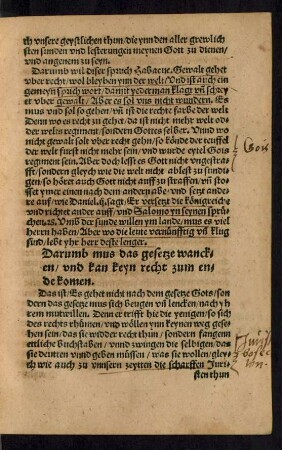 th vnsere geystlichen thun/ die ynn den aller grewlich
sten sunden vnd lesterungen meynen Gott zu dienen/
vnd angenem zu seyn.
Darumb wil diser spruch Habacuc. Gewalt gehet
vber recht/ wol bleyben ynn der welt/ Vnd ist auch ein
gemeyn sprich wort/ damit yederman klagt vñ schrey
et vber gewalt/ Aber es sol vns nicht wundern. Es
mus vnd sol so gehen/ vñ ist die rechte farbe der welt
Denn wo es recht zu gehet/ da ist nicht mehr welt od-
der welns regiment/ sondern Gottes selber. Vnnd wo
nicht gewalt solt vber recht gehen/ so könde der teuffel
der welt furst nicht mehr sein/ vnd wurde eytel Gots
regiment sein. Aber doch lesst es Gott nicht vngestra
fft/ sondern gleych wie die welt nicht ablest zu sundi
gen/ so höret auch Gott nicht auff zu straffen/ vñ stos
set ymer einen nach dem andern abe vnd setzt ande
re auff/ wie Daniel. ij. sagt/ Er versetzt die königreiche
vnd richtet ander auff/ vnd Salomo yn seynen sprü
chen. 28. Vmb der sunde willen ym lande/ mus es viel
herrn haben/ Aber wo die leute vernünfftig vñ klug
sind/ lebt yhr herr deste lenger.
Darumb mus das gesetze wanck-
en/ vnd kan keyn recht zum en-
de komen.
Das ist/ Es gehet nicht nach dem gesetze Gots/ son
dern das gesetze mus sich beugen vñ lencken/ nach yh
rem mutwillen. Denn er trifft hie die yenigen/ so sich
des rechts rhümen/ vnd wöllen ynn keynen weg gese
hen sein/ das sie widder recht thun/ sondern fangenn
ettliche buchstaben/ vnnd zwingen die selbigen/ das
sie deinten vnnd geben müssen/ was sie wollen/ gley-
ch wie auch zu vnnsern zeytten die scharffen Juri-
sten thun